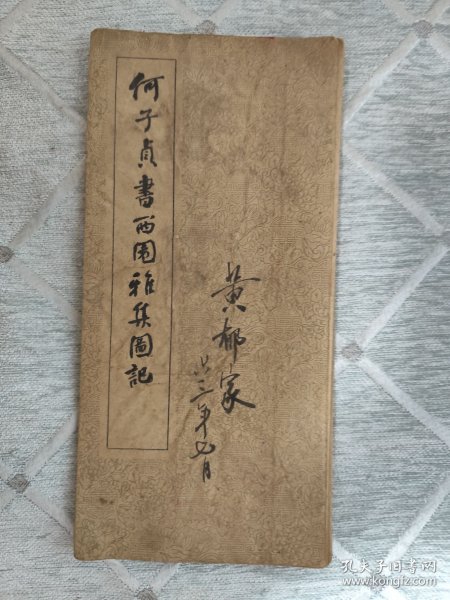 何子貞書西園雅集圖記
黄郁家
三年七月
孔夫子旧书网
www.kongfz.com